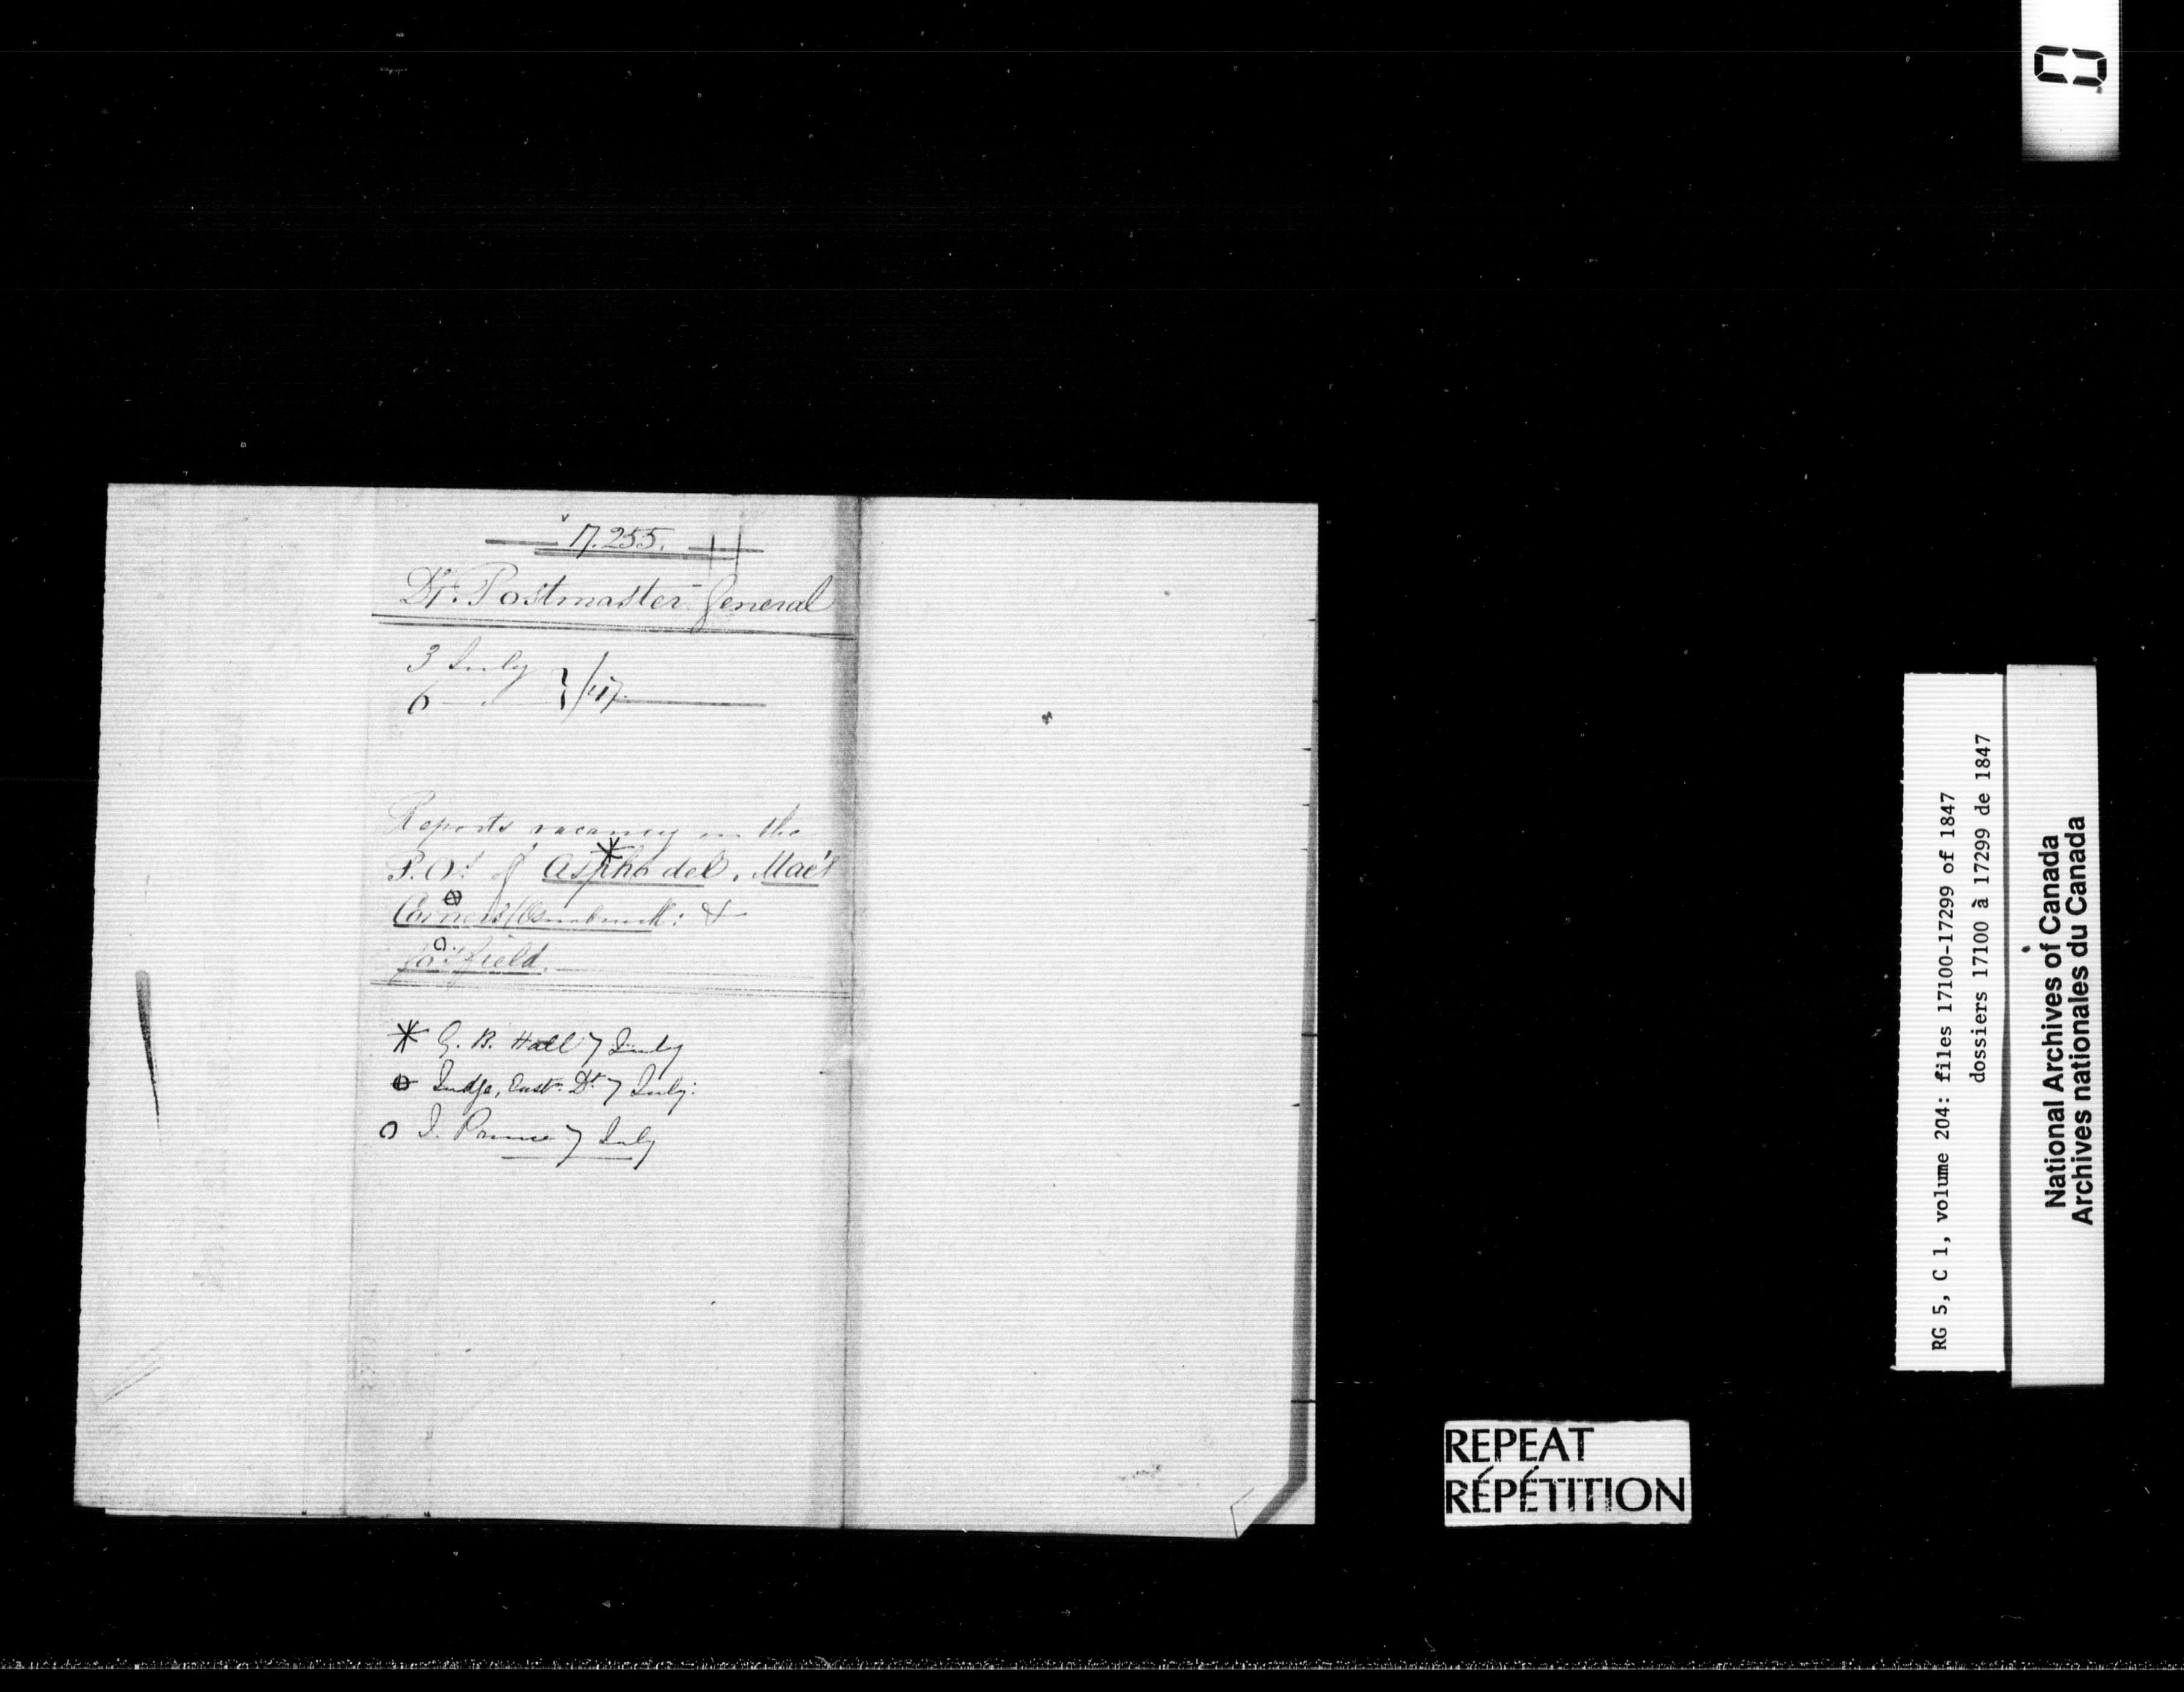 17.255.
Dy. Postmaster General
3 July
6 — " — } /47.
Reports vacancy in the
P.O.s of Asphodel, Mac's
Corners (Osnabruck: &
Gosfield.
* G. B. Hall 7 July
Judge, Eastn. Dt. 7 July:
o J. Prince 7 July
REPEAT
RÉPÉTITION
RG 5, C 1, volume 204: files 17100-17299 of 1847
dossiers 17100 à 17299 de 1847
National Archives of Canada
Archives nationales du Canada